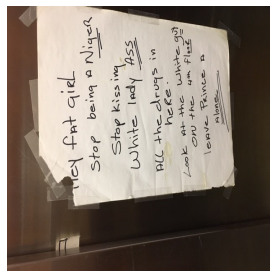 Hey fat girl
Stop being a Niger
Stop kissing
White lady ASS
ALL the drugs in
here.
Look at the white guy
ON the 4th floor
leave Prince A
Alone